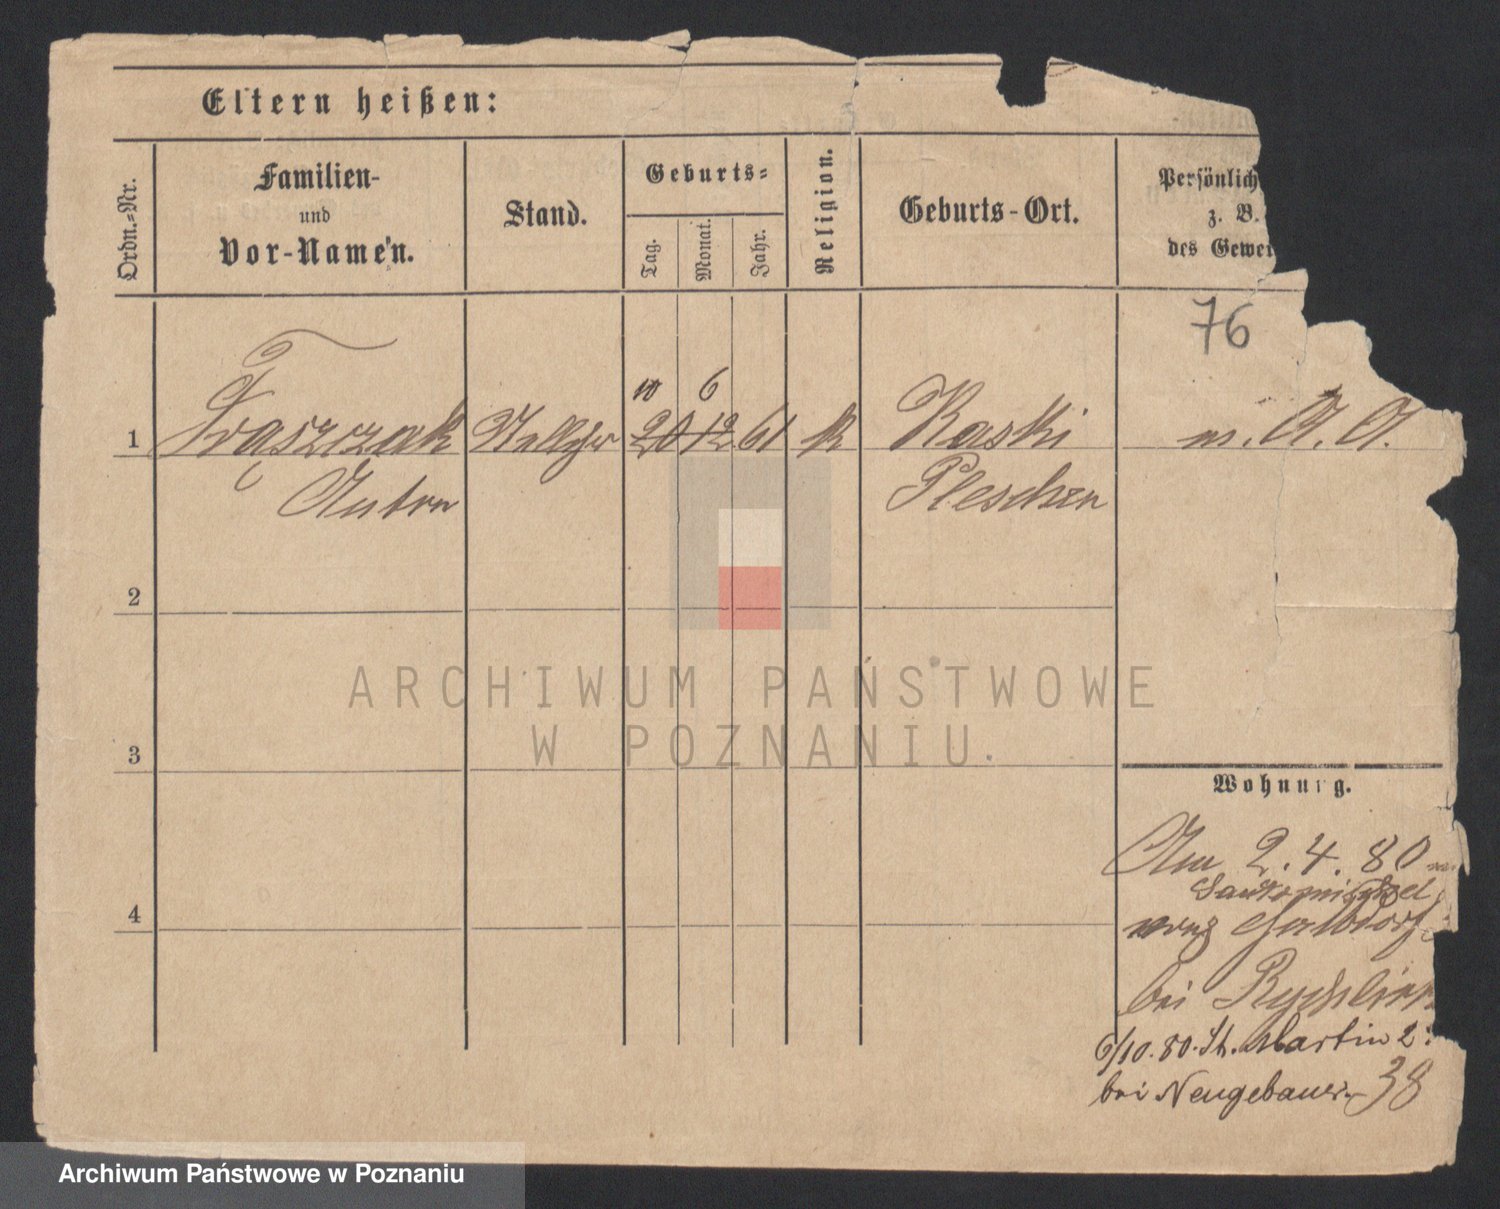 Eltern heißen:
Ordn.=Nr.
Familien-
und
Vor-Namen.
Stand.
Geburts=
Tag.
Monat.
Jahr.
Religion.
Geburts-Ort.
Persönlich
z. B.
des Gewer
76
10 6
1 Fraszczak 20 12 61 k Raski m. A. A.
Anton Pleschen
2
3
4
Wohnung.
Am 2. 4. 80
bei
6/10. 80. St. Martin 2
bei Neugebauer. 38
ARCHIWUM PAŃSTWOWE
W POZNANIU.
Archiwum Państwowe w Poznaniu